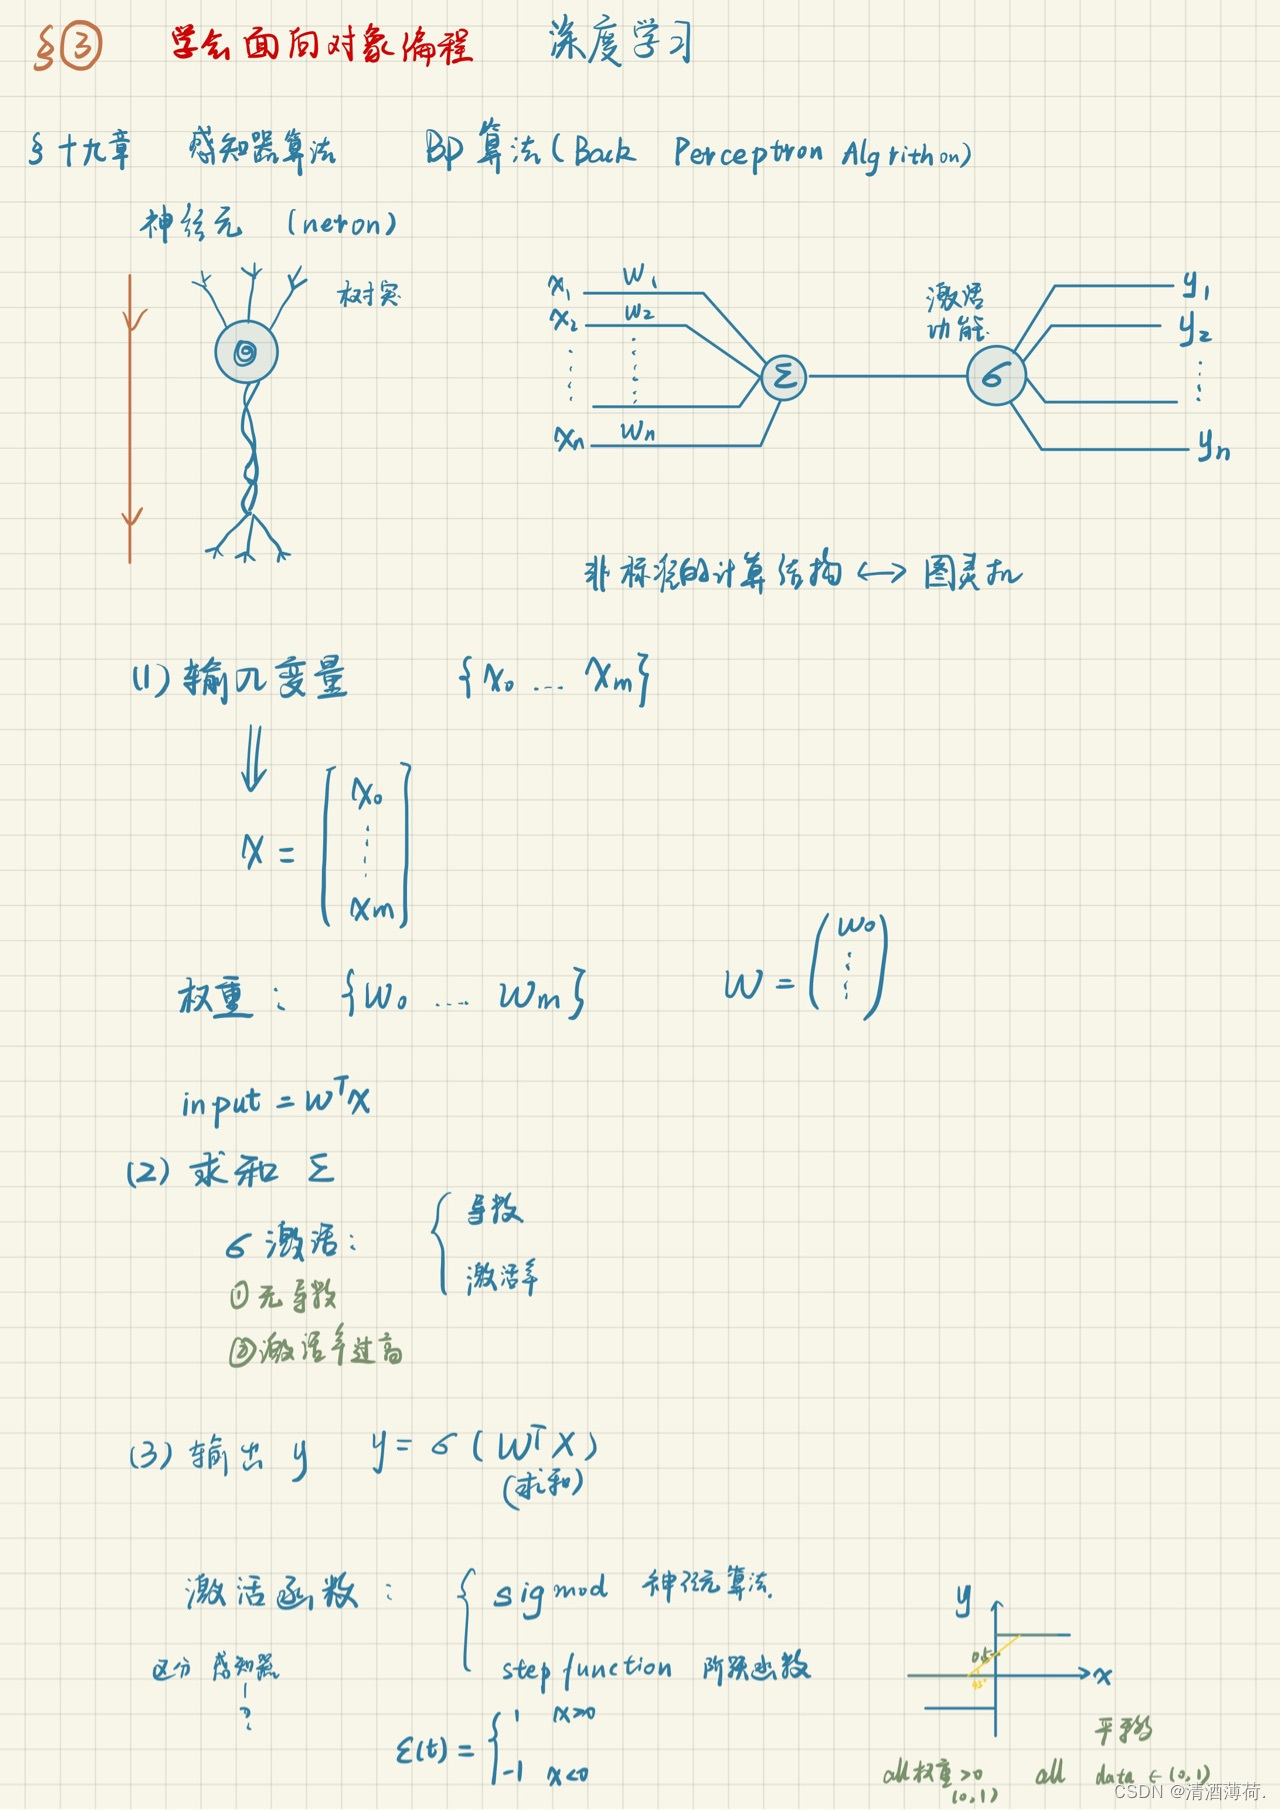 §③ 学会面向对象编程 深度学习
§十九章 感知器算法 BP算法(Back Perceptron Algrithon)
神经元 (neron)
树突
x₁ w₁
x₂ w₂
xₙ wₙ
Σ
激活
功能
σ
y₁
y₂
yₙ
非标准的计算结构 ↔ 图灵机
(1) 输入变量 {x₀ … xₘ}
⇓
X = [x₀ ⋮ xₘ]
权重: {w₀ …. wₘ} W = (w₀ ⋮)
input = wᵀx
(2) 求和 Σ
σ 激活: { 导数
激活率
①无导数
②激活率过高
(3) 输出 y y = σ(WᵀX)
(求和)
激活函数: { sigmod 神经元算法.
step function 阶跃函数
区分 感知器
?
ε(t) = { 1 x>0
-1 x<0
y
0.5
45°
x
平移
all 权重>0 all data ∈ (0,1)
(0,1)
CSDN @清酒薄荷.